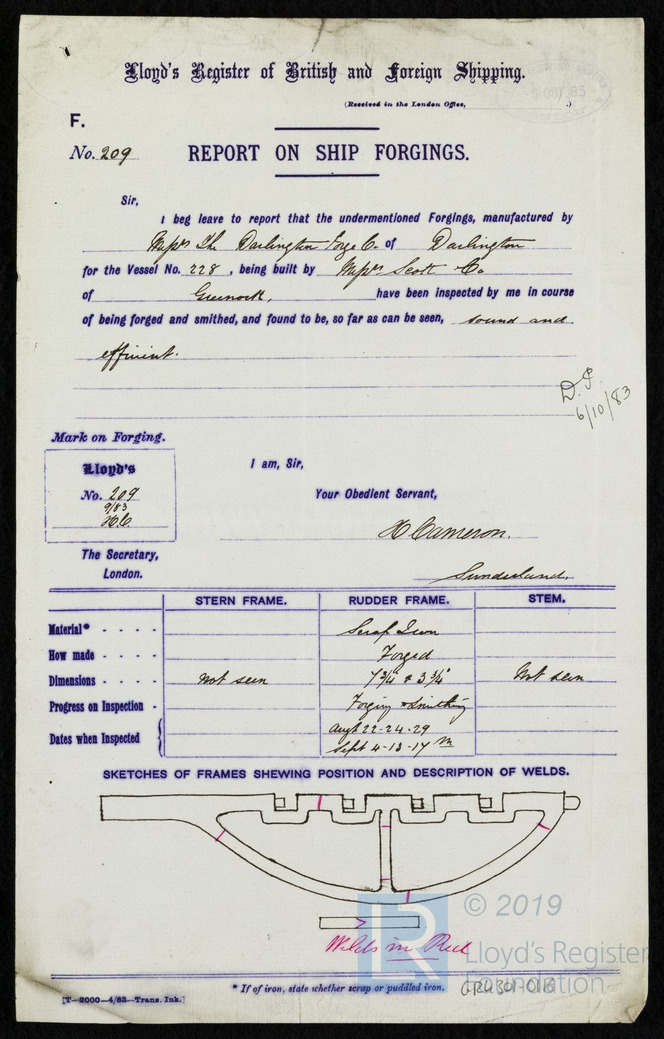 Lloyd's Register of British and Foreign Shipping.
(Received in the London Office, )
F.
No. 209 REPORT ON SHIP FORGINGS.
Sir,
I beg leave to report that the undermentioned Forgings, manufactured by
Messrs The Darlington Forge Co. of Darlington
for the Vessel No. 228, being built by Messrs Scott & Co
of Greenock, have been inspected by me in course
of being forged and smithed, and found to be, so far as can be seen, sound and
efficient.
6/10/83
Mark on Forging.
Lloyd's
No. 209
9/83
H.C.
I am, Sir,
Your Obedient Servant,
H Cameron.
Sunderland.
The Secretary,
London.
STERN FRAME. RUDDER FRAME. STEM.
Material* - - - - Scrap Iron
How made - - - - Forged
Dimensions - - - - Not seen 7 3/4 & 3 3/4" Not seen
Progress on Inspection - Forging & Smithing
Dates when Inspected Augt 22-24-29
Sept 4-13-17
SKETCHES OF FRAMES SHEWING POSITION AND DESCRIPTION OF WELDS.
Welds in Red
* If of iron, state whether scrap or puddled iron.
[T—2000—4/83—Trans. Ink.]
© 2019
LR
Lloyd's Register
Foundation